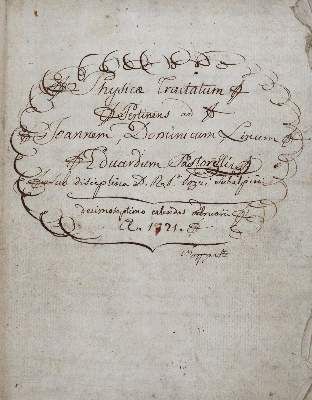 Physicæ Tractatum
Pertinens ad
Joannem, Dominicum Linum
Eduardum Pastorelli
disciplina D.
decimoseptimo calendas februarii
A. 1721.